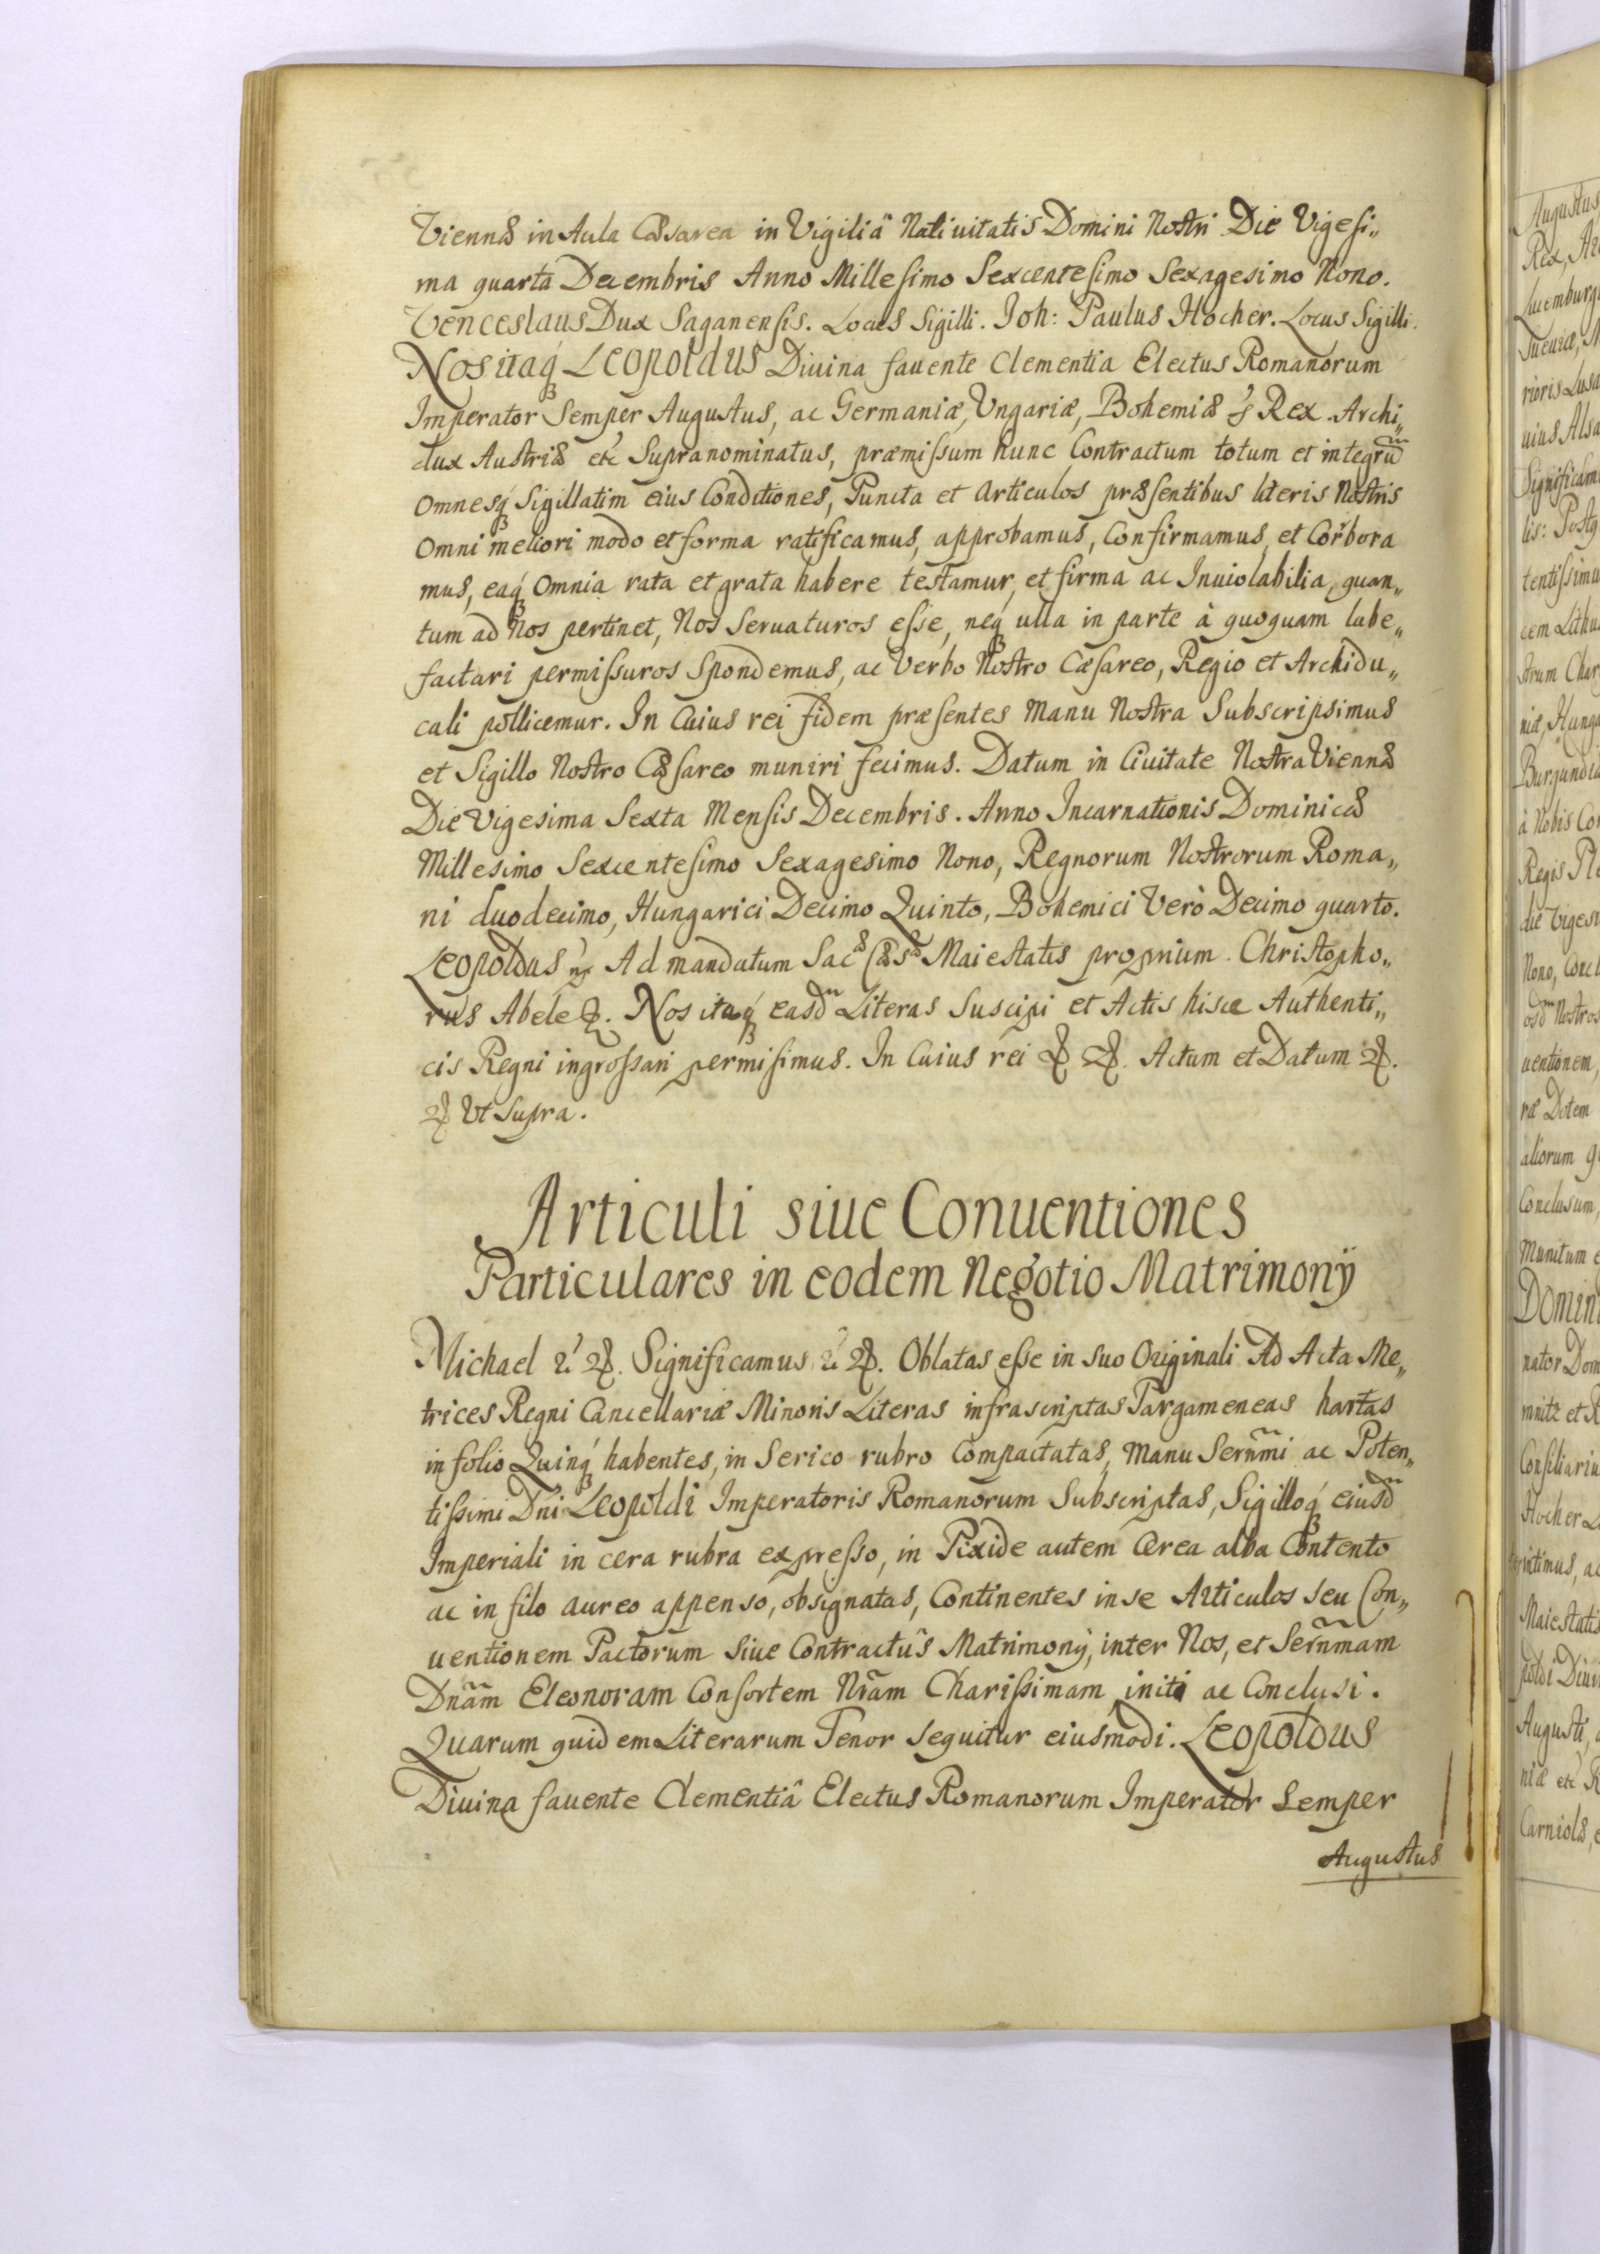 Viennæ in Aula Cæsarea in Vigiliâ Natiuitatis Domini Nostri Die Vigesi„
ma quarta Decembris Anno Millesimo Sexcentesimo Sexagesimo Nono.
Venceslaus Dux Saganensis. Locus Sigilli. Joh: Paulus Hocher. Locus Sigilli.
Nos itaq́ꝫ Leopoldus Diuina fauente Clementia Electus Romanorum
Imperator Semper Augustus, ac Germaniæ, Vngariæ, Bohemiæ Rex. Archi„
dux Austriæ etc Supranominatus, præmissum hunc Contractum totum et integrũ
Omnesq́ꝫ Sigillatim eius Conditiones, Puncta et Articulos præsentibus literis Nostris
Omni meliori modo et forma ratificamus, approbamus, Confirmamus, et Corrbora
mus, eaq́ꝫ Omnia rata et grata habere testamur, et firma ac Inuiolabilia, quan„
tum ad Nos pertinet, Nos Seruaturos esse, neq́ꝫ ulla in parte à quoquam labe„
factari permissuros Spondemus, ac Verbo Nostro Cæsareo, Regio et Archidu„
cali pollicemur. In Cuius rei fidem præsentes Manu Nostra Subscripsimus
et Sigillo Nostro Cæsareo muniri fecimus. Datum in Ciuitate Nostra Viennæ
Die Vigesima Sexta Mensis Decembris. Anno Incarnationis Dominicæ
Millesimo Sexcentesimo Sexagesimo Nono, Regnorum Nostrorum Roma„
ni duodecimo, Hungarici Decimo Quinto, Bohemici Verò Decimo quarto.
Leopoldus Ad mandatum Sacæ Cæsæ Maiestatis proprium. Christopho„
rus Abele. Nos itaq́ꝫ easd̃ Literas Suscipi et Actis hisce Authenti„
cis Regni ingrossari permisimus. In Cuius rei Actum et Datum
Vt Supra.
Articuli siue Conuentiones
Particulares in eodem Negotio Matrimonÿ
Michael Significamus Oblatas esse in suo Originali Ad Acta Me„
trices Regni Cancellariæ Minoris Literas infrascriptas Pargameneas hartas
in folio Quinq́ꝫ habentes, in Serico rubro Compactatas, Manu Serñmi ac Poten„
tissimi Dni Leopoldi Imperatoris Romanorum Subscriptas, Sigilloq́ꝫ eiusd̃
Imperiali in cera rubra expresso, in Pixide autem Cerea alba Contento
ac in filo aureo appenso, obsignatas, Continentes in se Articulos seu Con„
uentionem Pactorum siue Contractûs Matrimonÿ, inter Nos, et Serñmam
Dnãm Eleonoram Consortem Nrãm Charissimam initi ac Conclusi.
Quarum quidem Literarum Tenor Sequitur eiusmodi. Leopoldus
Diuina fauente Clementiâ Electus Romanorum Imperator Semper
Augustus